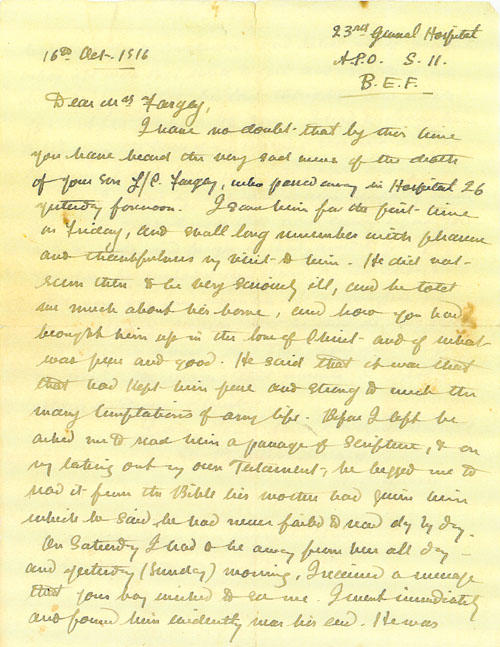 23rd General Hospital
16th Oct. 1916
A.P.O. S. 11.
B. E. F.
Dear Mrs Fargey,
I have no doubt that by this time
you have heard the very sad news of the death
of your son L/C. Fargey, who passed away in Hospital 26
yesterday forenoon. I saw him for the first time
on Friday, and shall long remember with pleasure
and thankfulness my visit to him. He did not
seem then to be very seriously ill, and he told
me much about his home, and how you had
brought him up in the love of Christ and of what
was pure and good. He said that it was that
that had kept him pure and strong to meet the
many temptations of army life. Before I left he
asked me to read him a passage of Scripture, & on
my taking out my own Testament, he begged me to
read it from the Bible his mother had given him
which he said he had never failed to read day by day.
On Saturday I had to be away from here all day
and yesterday (Sunday) morning, I received a message
that your boy wished to see me. I went immediately
and found him evidently near his end. He was